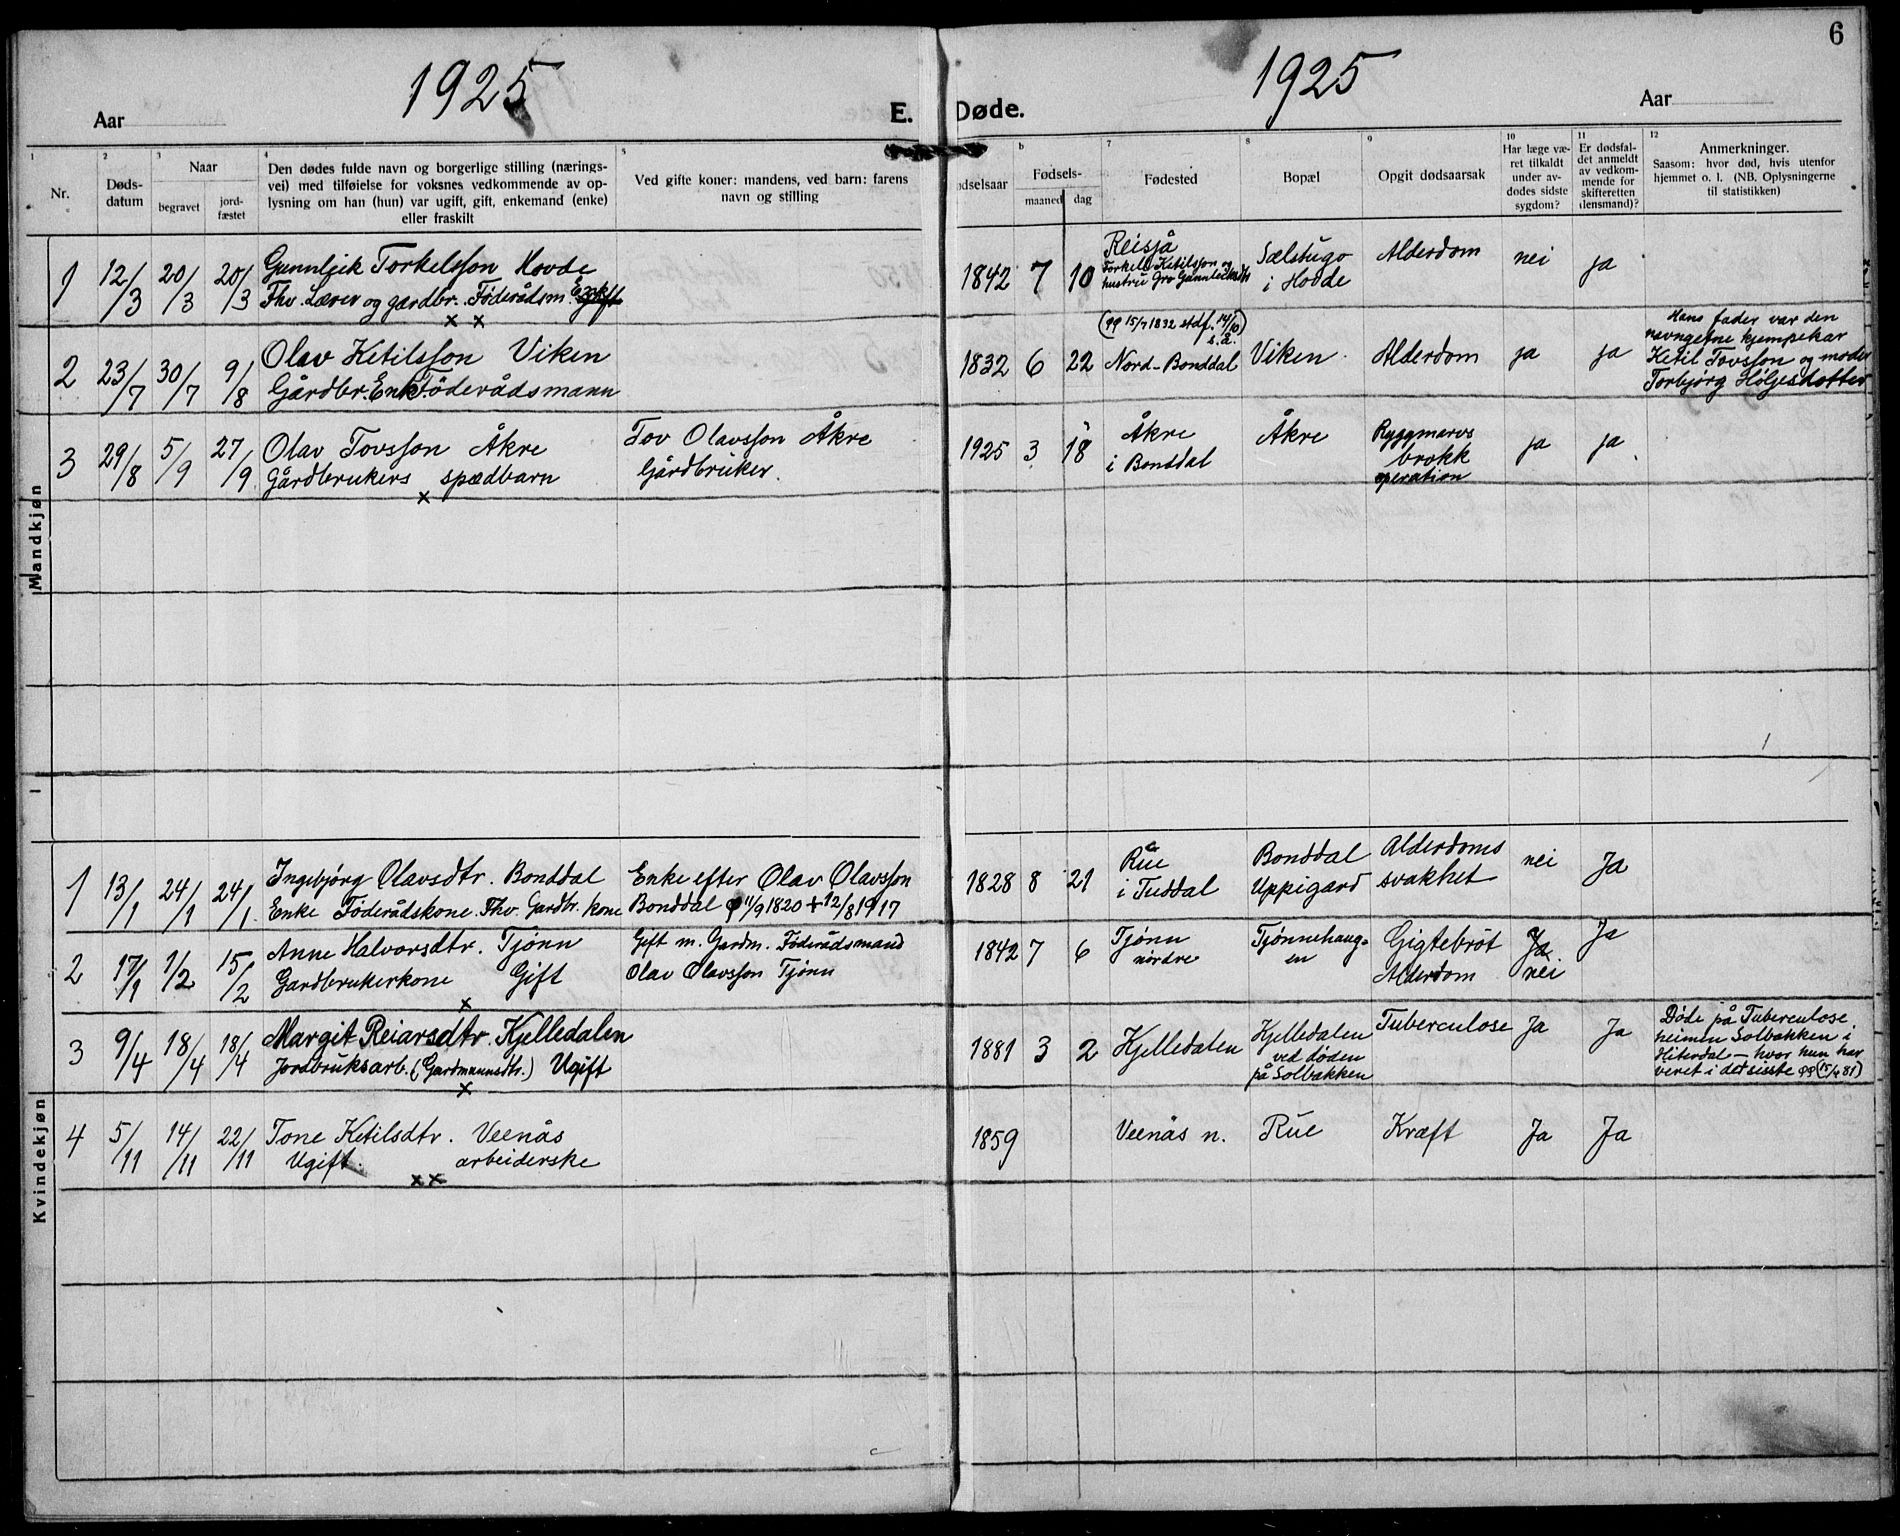 6
1925
1925
Aar
E. Døde.
Aar
1
2
3
4
5
6
7
8
9
10
11
12
Nr.
Døds-
datum
Naar
begravet
jord-
fæstet
Den dødes fulde navn og borgerlige stilling (nærings-
vei) med tilføielse for voksnes vedkommende av op-
lysning om han (hun) var ugift, gift, enkemand (enke)
eller fraskilt
Ved gifte koner: mandens, ved barn: farens
navn og stilling
dselsaar
Fødsels-
maaned
dag
Fødested
Bopæl
Opgit dødsaarsak
Har læge væ-
ret tilkaldt
under av-
dødes sidste
sygdom?
Er dødsfal-
det anmeldt
av vedkom-
mende for
skifteretten
(lensmand)?
Anmerkninger.
Saasom: hvor død, hvis utenfor
hjemmet o. l. (NB. Oplysningerne
til statistikken)
Mandkjøn
1
12/3
20/3
20/3
Gunnleik Torkelsson Hovde
Fhv. Lærer og gardbr. Föderådsm. Enk. Gift
x x
1842
7
10
Reisjå
Torkell Ketilsson og
hustru Gro Gunnleiksdtr
Sælstugo
i Hovde
Alderdom
nei
ja
2
23/7
30/7
9/8
Olav Ketilsson Viken
Gårdbr. Enk. Föderådsmann
1832
6
22
(99 15/7 1832 stdf. 14/10 s.å.)
Nord-Bonddal
Viken
Alderdom
ja
ja
Hans fader var den
navngjetne kjempekar
Ketil Tovsson og moder
Torbjørg Høljesdotter
3
29/8
5/9
27/9
Olav Tovsson Åkre
Gårdbrukers spædbarn
x
Tov Olavsson Åkre
Gårdbruker.
1925
3
18
Åkre
i Bonddal
Åkre
Ryggmarvs
brokk
operation
ja
ja
Kvindekjøn
1
13/1
24/1
24/1
Ingebjörg Olavsdtr. Bonddal
Enke Föderådskone. Fhv. Gardbr. kone
Enke efter Olav Olavsson
Bonddal φ 11/9 1820 + 12/8 1917
1828
8
21
Rue
i Tuddal
Bonddal
Uppigard
Alderdoms
svakhet
nei
Ja
2
17/1
1/2
15/2
Anne Halvorsdtr. Tjønn
Gardbrukerkone Gift
x
Gift m. Gardm. Föderådsmand
Olav Olavsson Tjönn
1842
7
6
Tjønn
nördre
Tjønnehaug-
en
Gigtebröt
Alderdom
Ja
nei
Ja
3
9/4
18/4
18/4
Margit Reiarsdtr. Kjelledalen
Jordbruksarb. (Gardmannsdtr.) Ugift
x
1881
3
2
Kjelledalen
Kjelledalen
ved døden
på Solbakken
Tuberculose
Ja
Ja
Døde på Tuberculose
heimen Solbakken i
Hiterdal – hvor hun har
veret i det sisste 99 (15/4 81)
4
5/11
14/11
22/11
Tone Ketilsdtr. Veenås
Ugift. arbeiderske
xx
1859
Veenås n.
Rue
Kræft
Ja
Ja